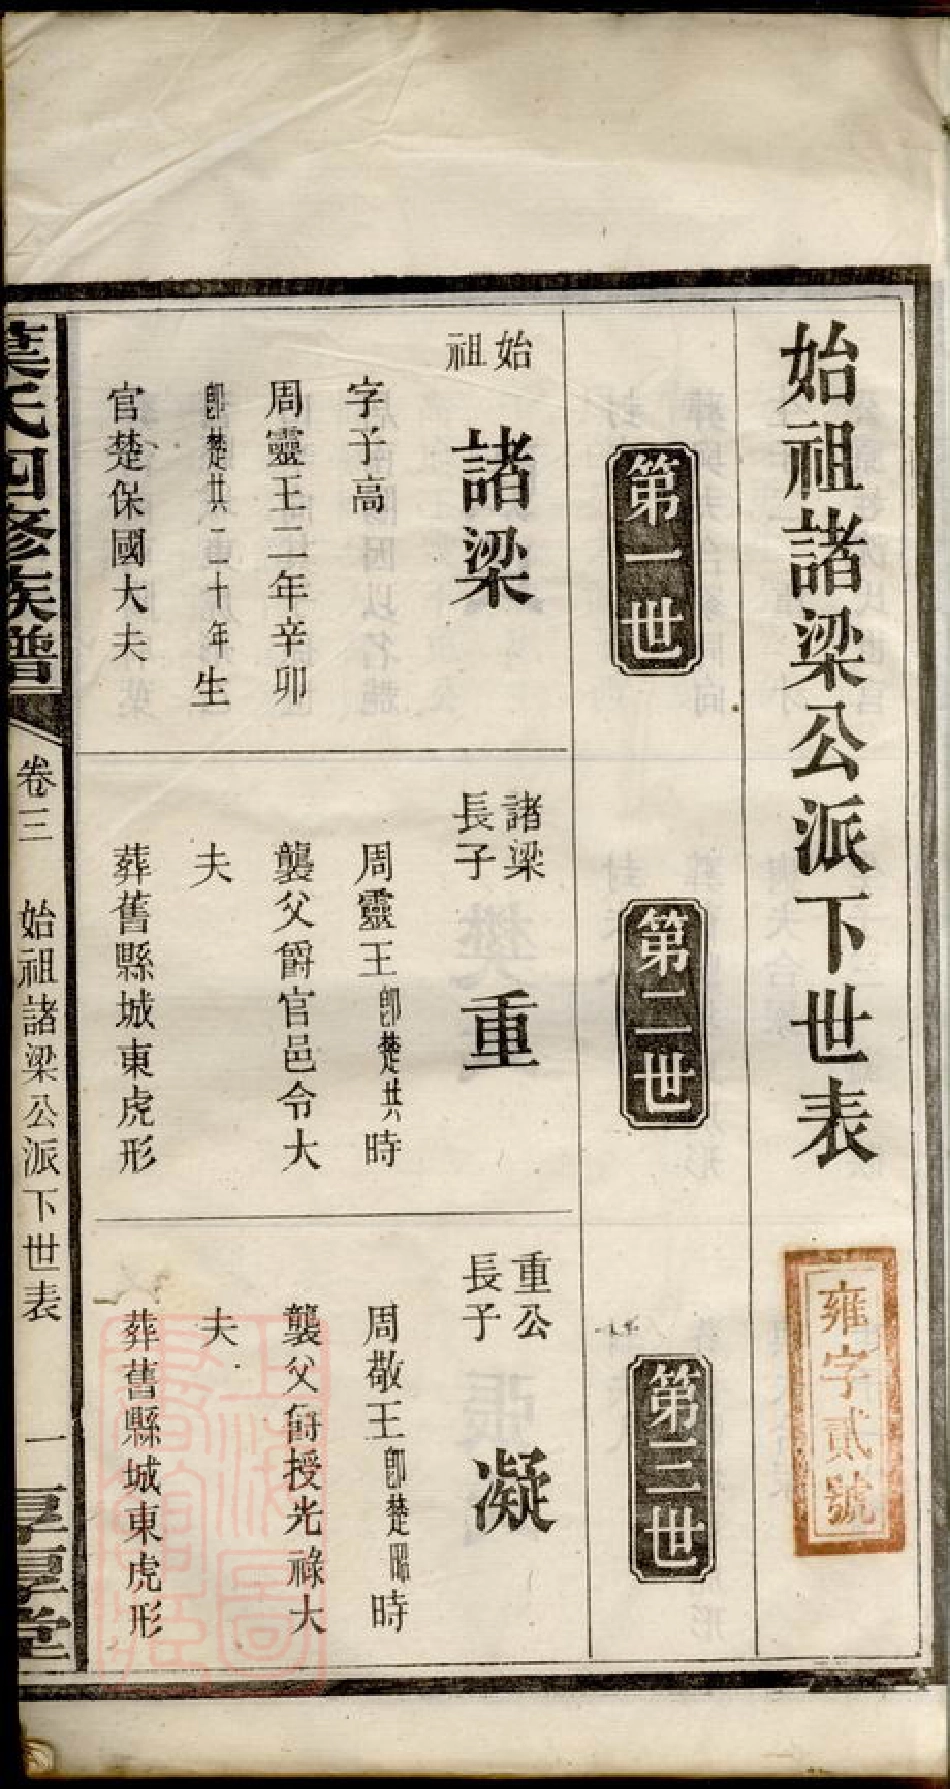 始祖諸梁公派下世表
雍字貳號
第一世
第二世
第三世
始祖
諸梁
字子高
周靈王二年辛卯
卽楚共二十年生
官楚保國大夫
諸梁長子
重
周靈王卽楚共時
襲父爵官邑令大
夫
葬舊縣城東虎形
重公長子
凝
周敬王卽楚昭時
襲父爵授光祿大
夫
葬舊縣城東虎形
葉氏四修族譜
卷三
始祖諸梁公派下世表
一
享厚堂